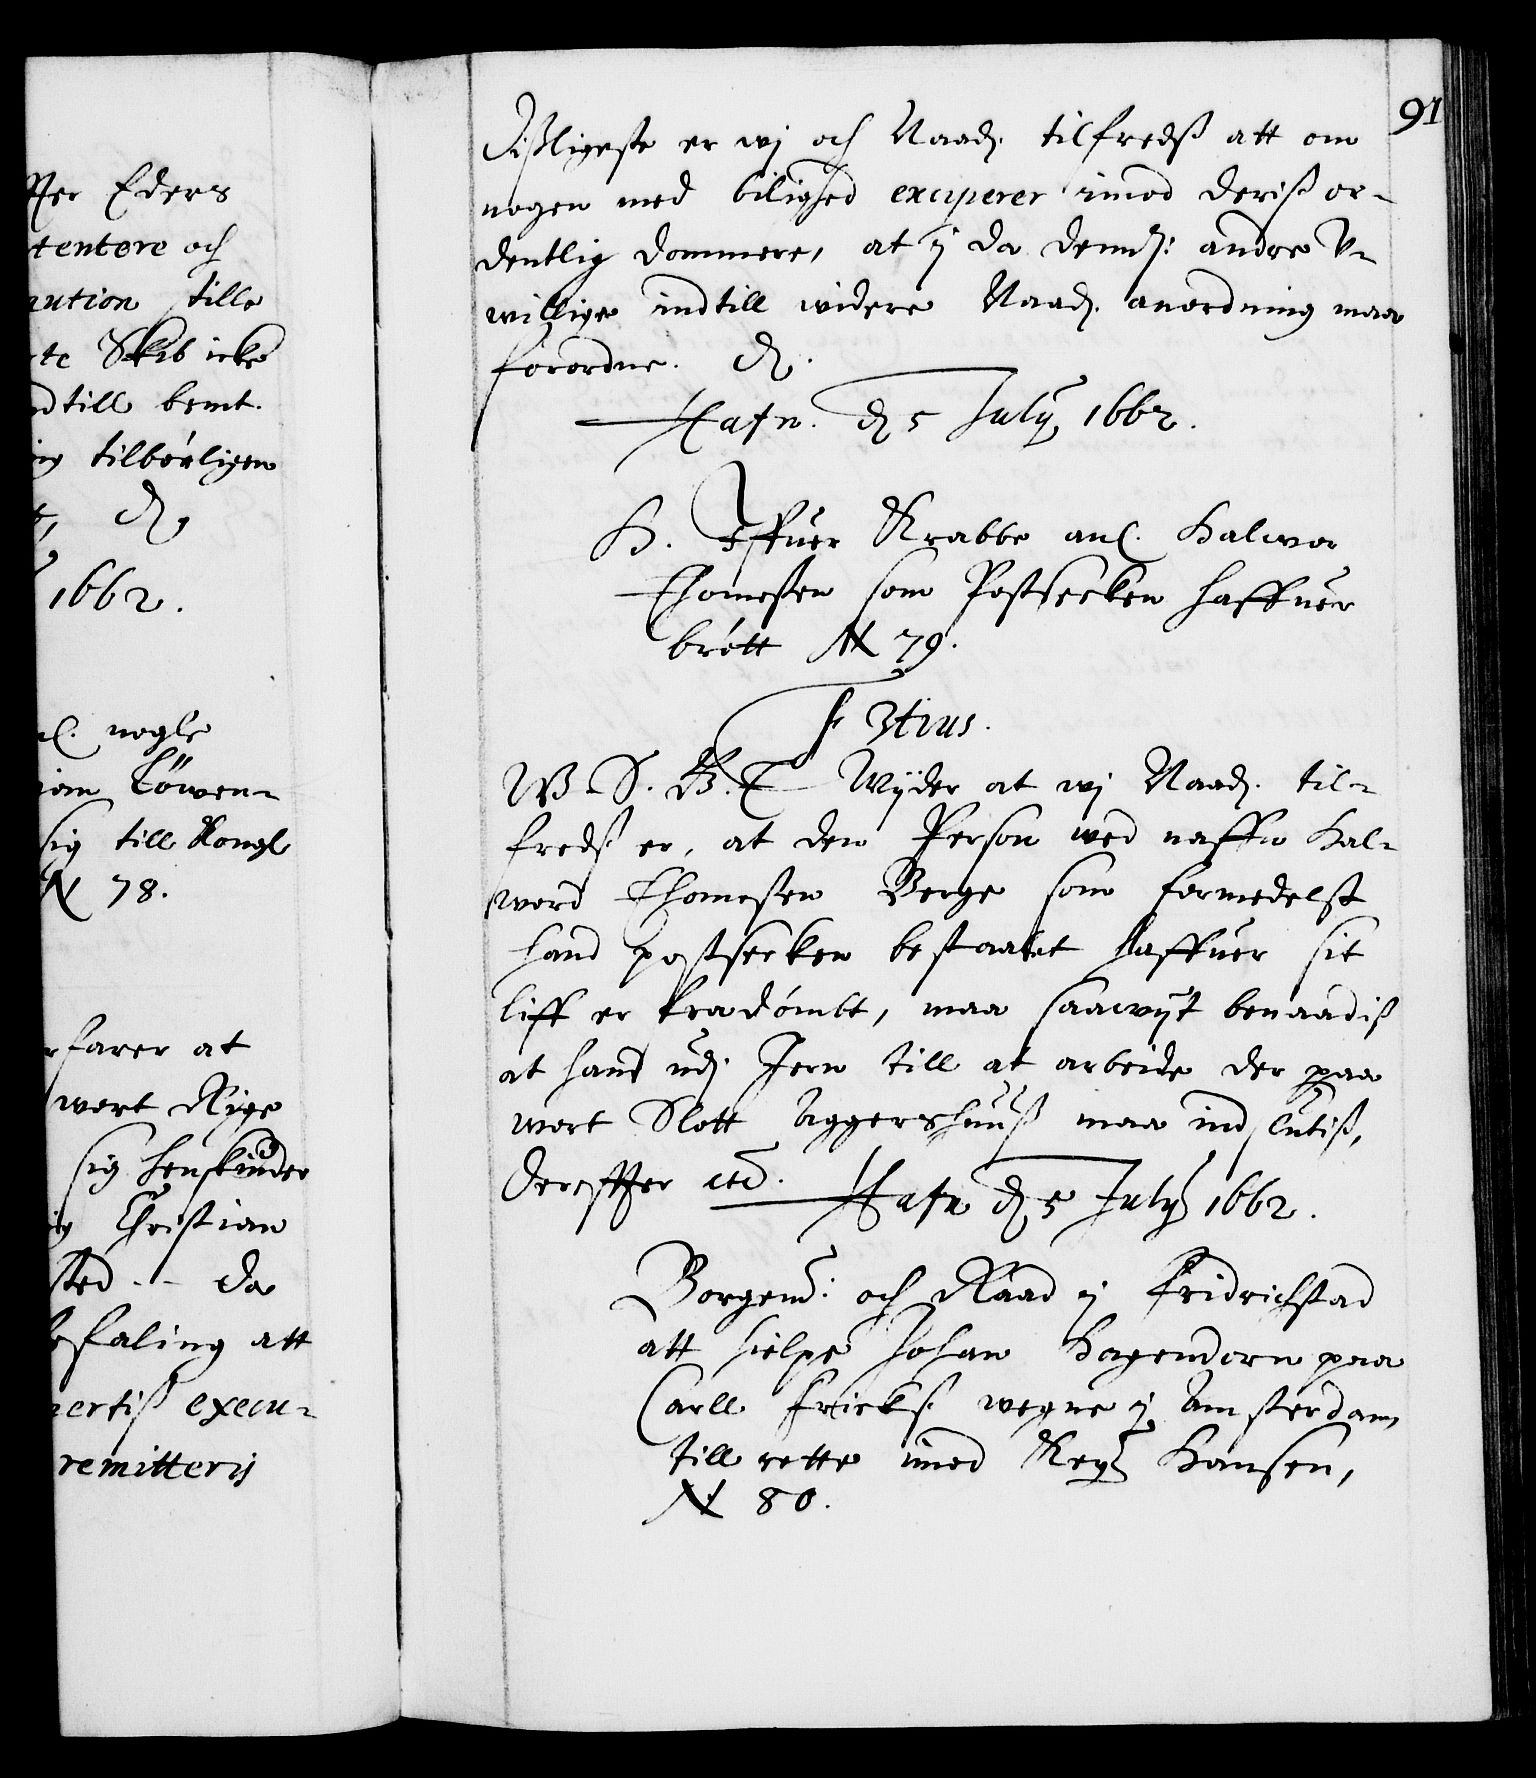 91
ffter Eders
tentere och
aution stille
te Skib icke
ndtill bemt.
ig tilbørligen
1662.
nogle
iam Löwen-
sig till Kongl
N 78.
rfarer at
wort Rige
sig henskinder
Christian
sted -- da
befaling att
nertiß execu-
remitterij
Dißligeste er wj och Naad. tilfredß att om
nogen med bilighed exciperer imod deriß or-
dentlig dommere, at ij da dennß: andre V-
willige indtill widere Naad. anordning maa
forordne. D.
Hafn. D 5 Julij 1662.
H. Iffuer Krabbe anl. Halwor
Thomeßen som Postsecken haffuer
brótt N 79.
Fr 3tius.
W. S. G. T Wijder at wj Naad. til-
fredß er, at den Person wed naffn Hal-
word Thomeßen Berge som formedelst
hand postsecken bestaalet haffuer sit
liff er fradómbt, maa saawijt benaadiß
at hand udj Jern till at arbeide der paa
wort Slott Aggershuuß maa indsluttiß,
dereffter etc. Hafn D 5 Julij 1662.
Borgem: och Raad ij Fridrichstad
att hielpe Johan Hagendorn paa
Carll Frickß wegne ij Amsterdam
till rette imod Hansen,
N 80.